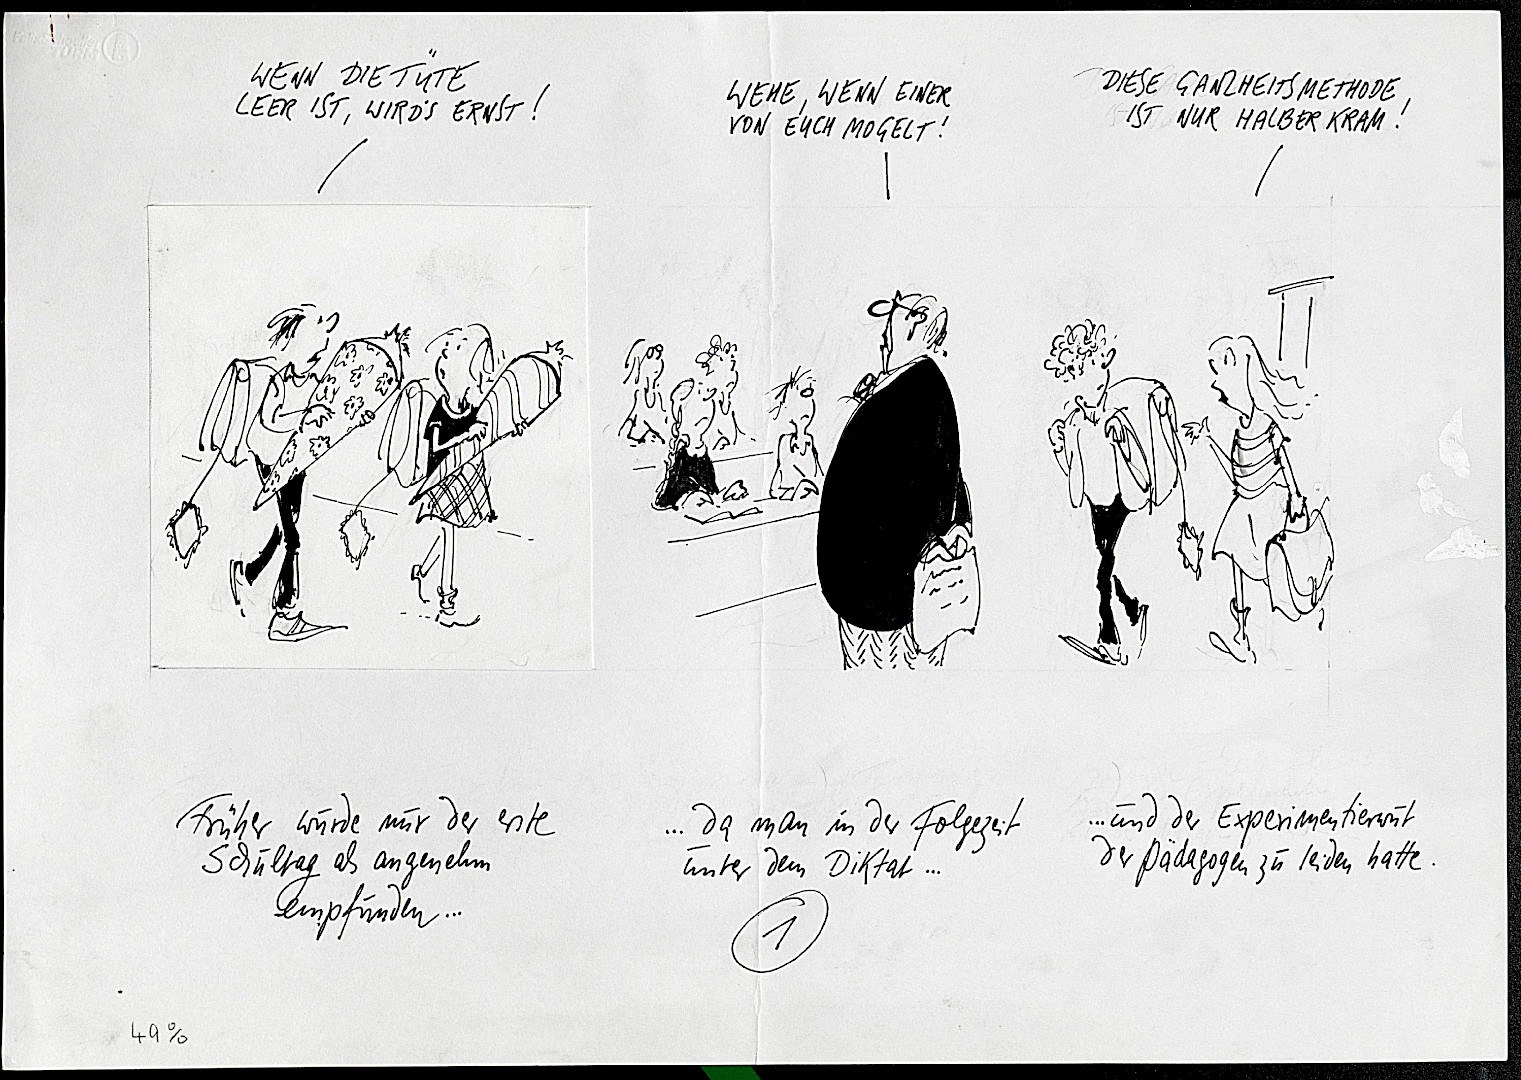 WENN DIE TÜTE
LEER IST, WIRD'S ERNST!
WEHE, WENN EINER
VON EUCH MOGELT!
DIESE GANZHEITSMETHODE
IST NUR HALBER KRAM!
Früher wurde nur der erste
Schultag als angenehm
empfunden...
... da man in der Folgezeit
unter dem Diktat ...
...und der Experimentierwut
der Pädagogen zu leiden hatte.
1
49%